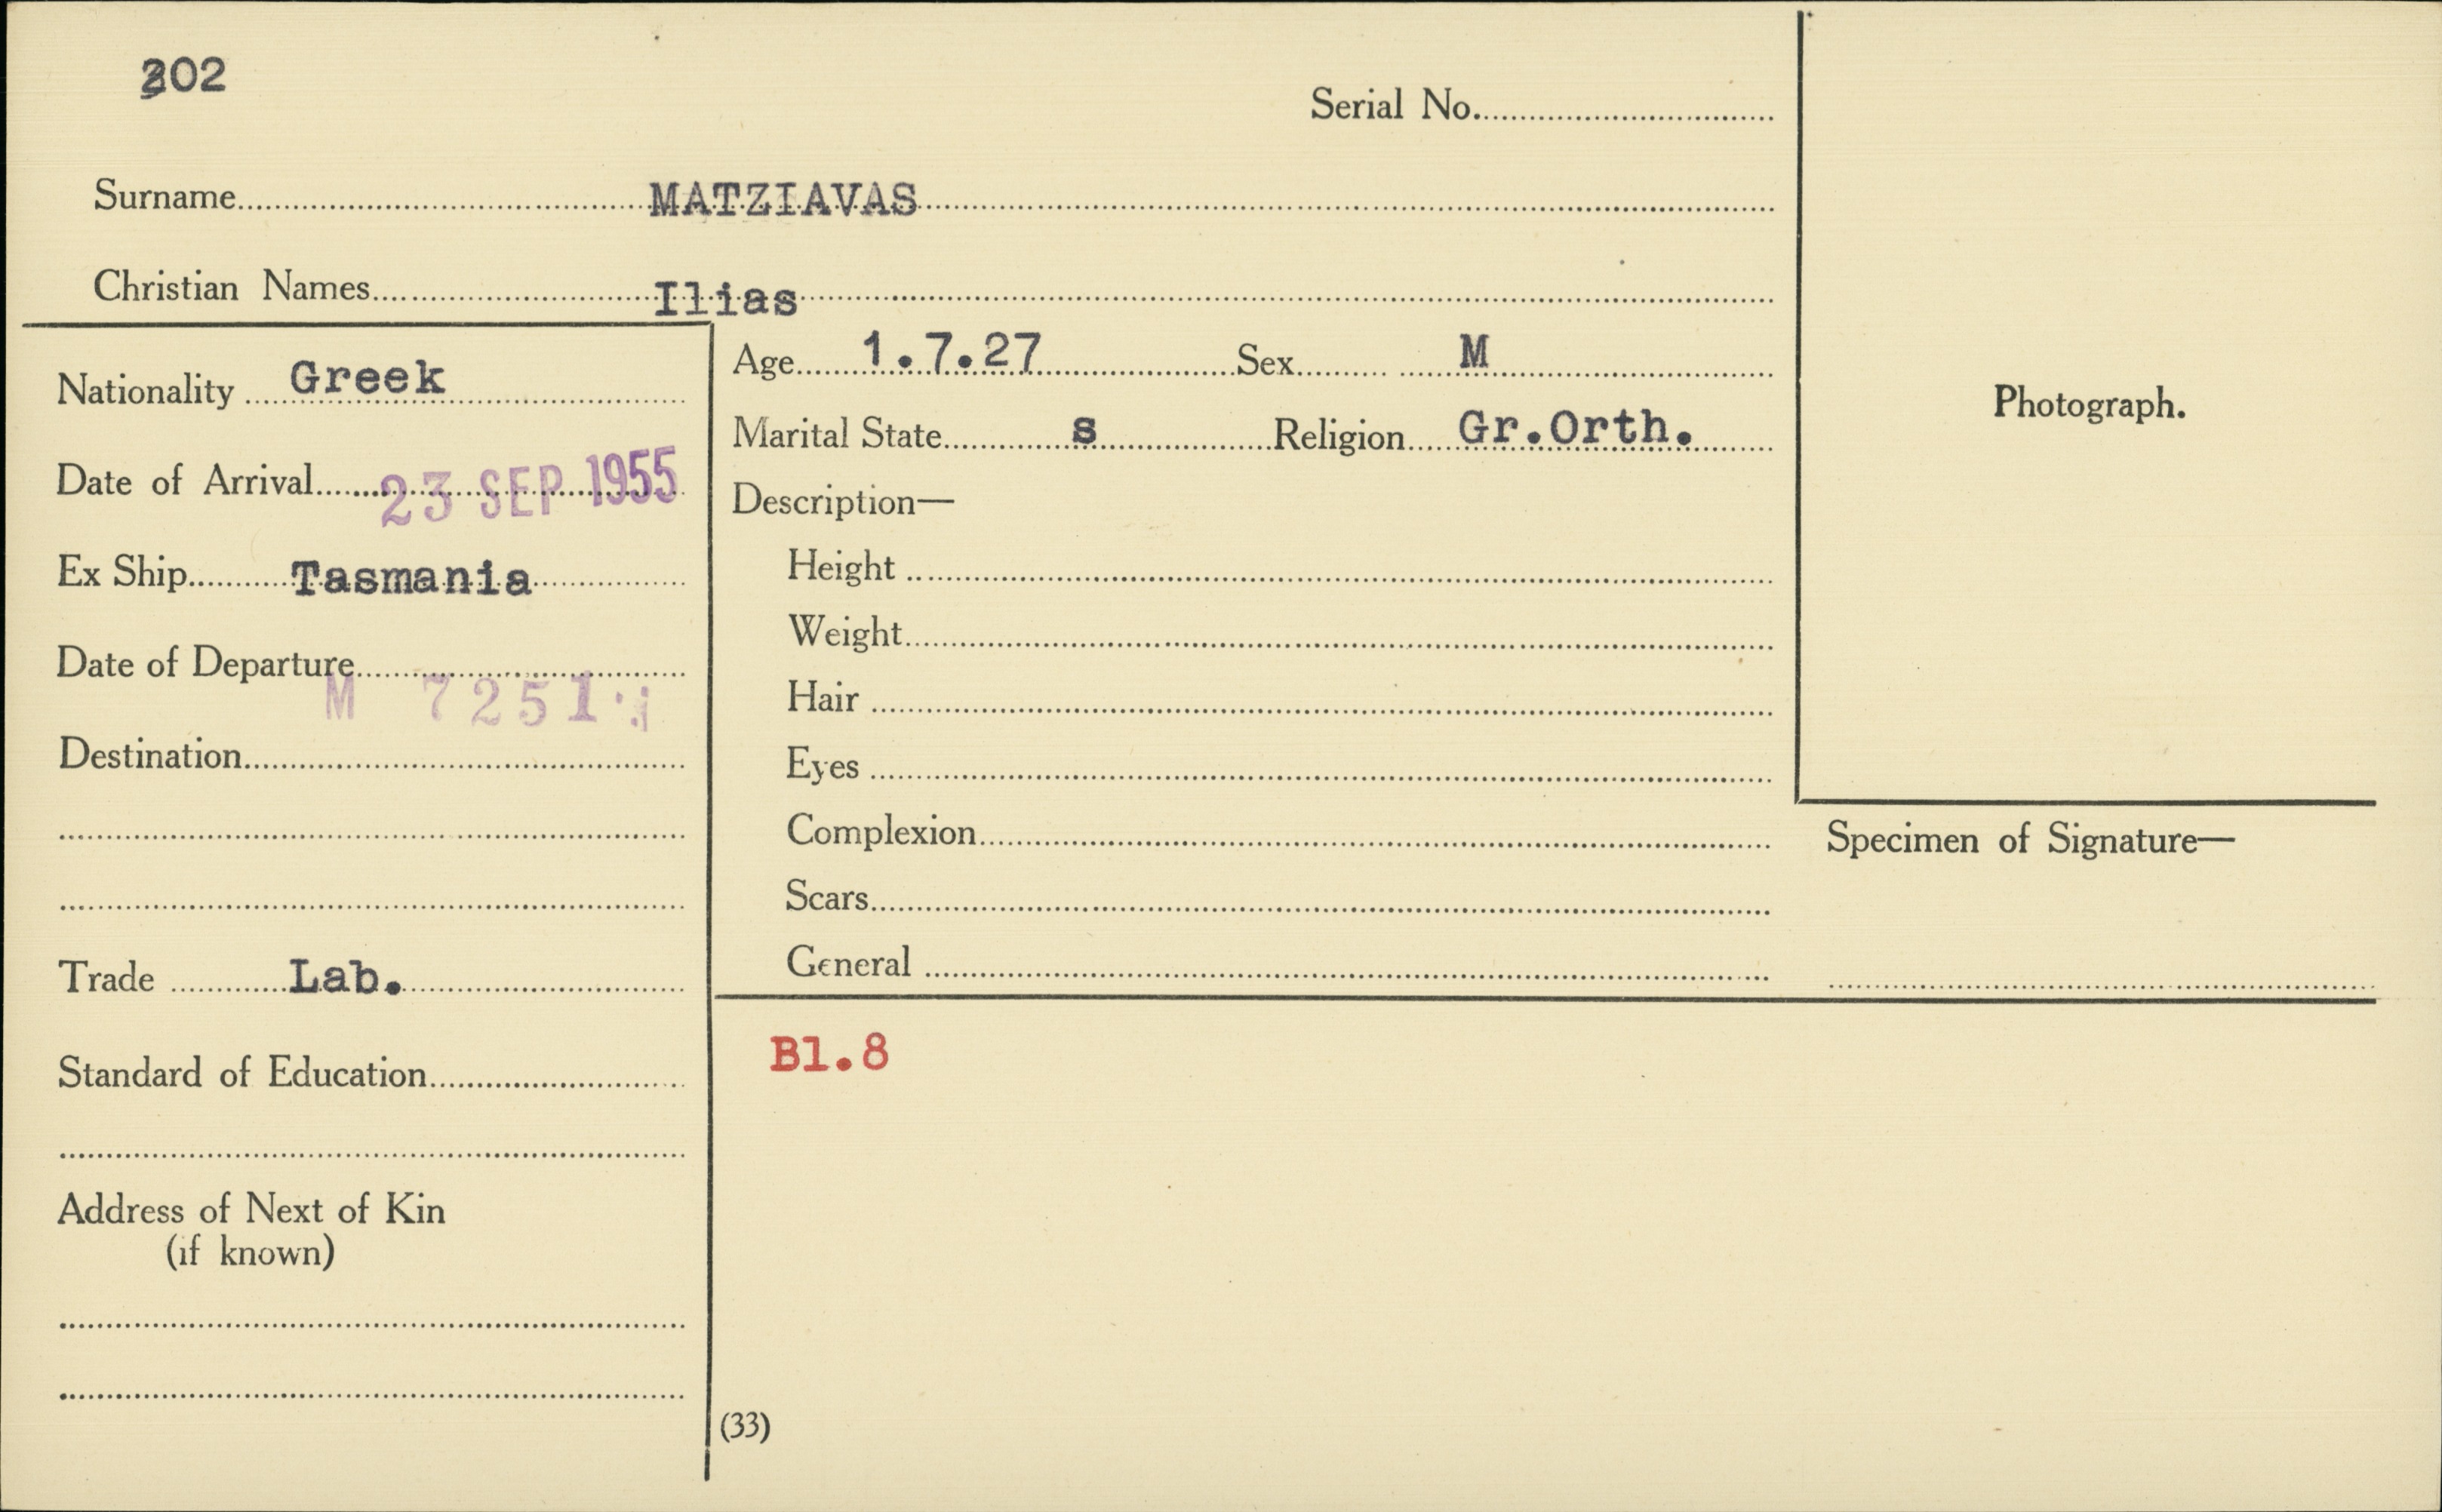 302
Serial No.
Surname MATZIAVAS
Christian Names Ilias
Nationality Greek
Date of Arrival 23 SEP 1955
Ex Ship Tasmania
Date of Departure
M 7251
Destination
Trade Lab.
Standard of Education
Address of Next of Kin
(if known)
Age 1.7.27 Sex M
Marital State s Religion Gr.Orth.
Description—
Height
Weight
Hair
Eyes
Complexion
Scars
General
Photograph.
Specimen of Signature—
Bl.8
(33)